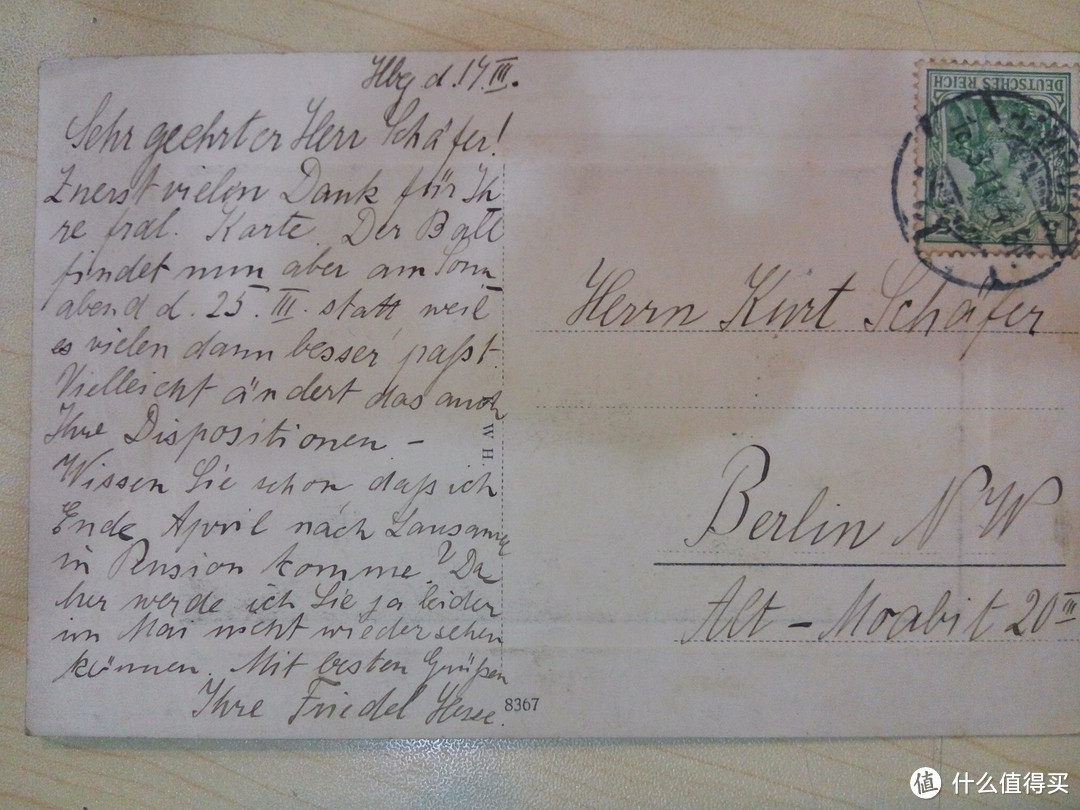 Hbg d. 17. III.
Sehr geehrter Herr Schäfer!
Zuerst vielen Dank für Ih
re frdl. Karte. Der Ball
findet nun aber am Sonn
abend d. 25. III. statt weil
es vielen dann besser paßt.
Vielleicht ändert das auch
Ihre Dispositionen –
Wissen Sie schon daß ich
Ende April nach Lausanne
in Pension komme? Da
her werde ich Sie ja leider
im Mai nicht wiedersehen
können. Mit besten Grüßen
Ihre Friedel Hesse.
W H.
8367
DEUTSCHES REICH
Herrn Kurt Schäfer
Berlin NW
Alt – Moabit 20 III
值 什么值得买